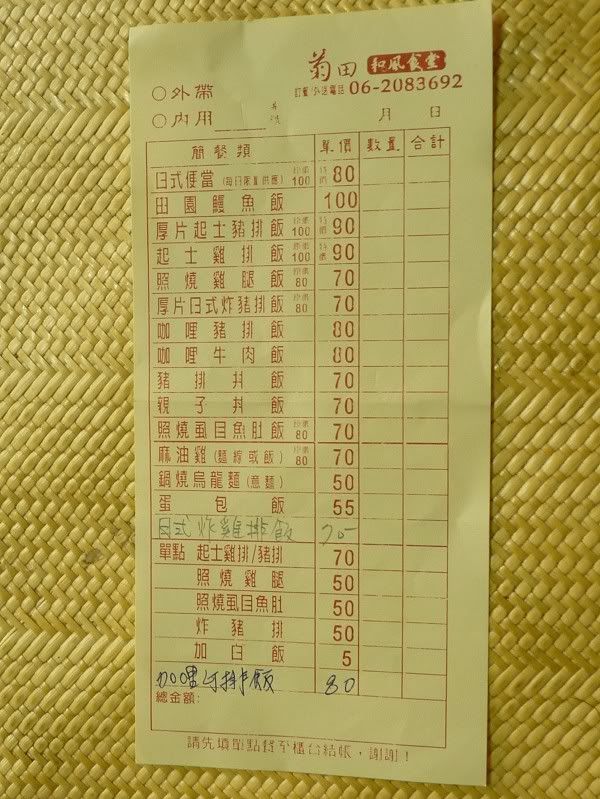 菊田 和風食堂
訂餐 外送電話 06-2083692
○外帶
○內用 桌號 月 日
簡餐類 單價 數量 合計
日式便當(每日限量供應) 原價100 特價80
田園鰻魚飯 100
厚片起士豬排飯 原價100 特價90
起士雞排飯 原價100 特價90
照燒雞腿飯 原價80 70
厚片日式炸豬排飯 原價80 70
咖哩豬排飯 80
咖哩牛肉飯 80
豬排丼飯 70
親子丼飯 70
照燒虱目魚肚飯 原價80 70
麻油雞(麵線或飯) 原價80 70
鍋燒烏龍麵(意麵) 50
蛋包飯 55
日式炸雞排飯 70
單點 起士雞排/豬排 70
照燒雞腿 50
照燒虱目魚肚 50
炸豬排 50
加白飯 5
排飯 80
總金額:
請先填單點餐至櫃台結帳,謝謝!